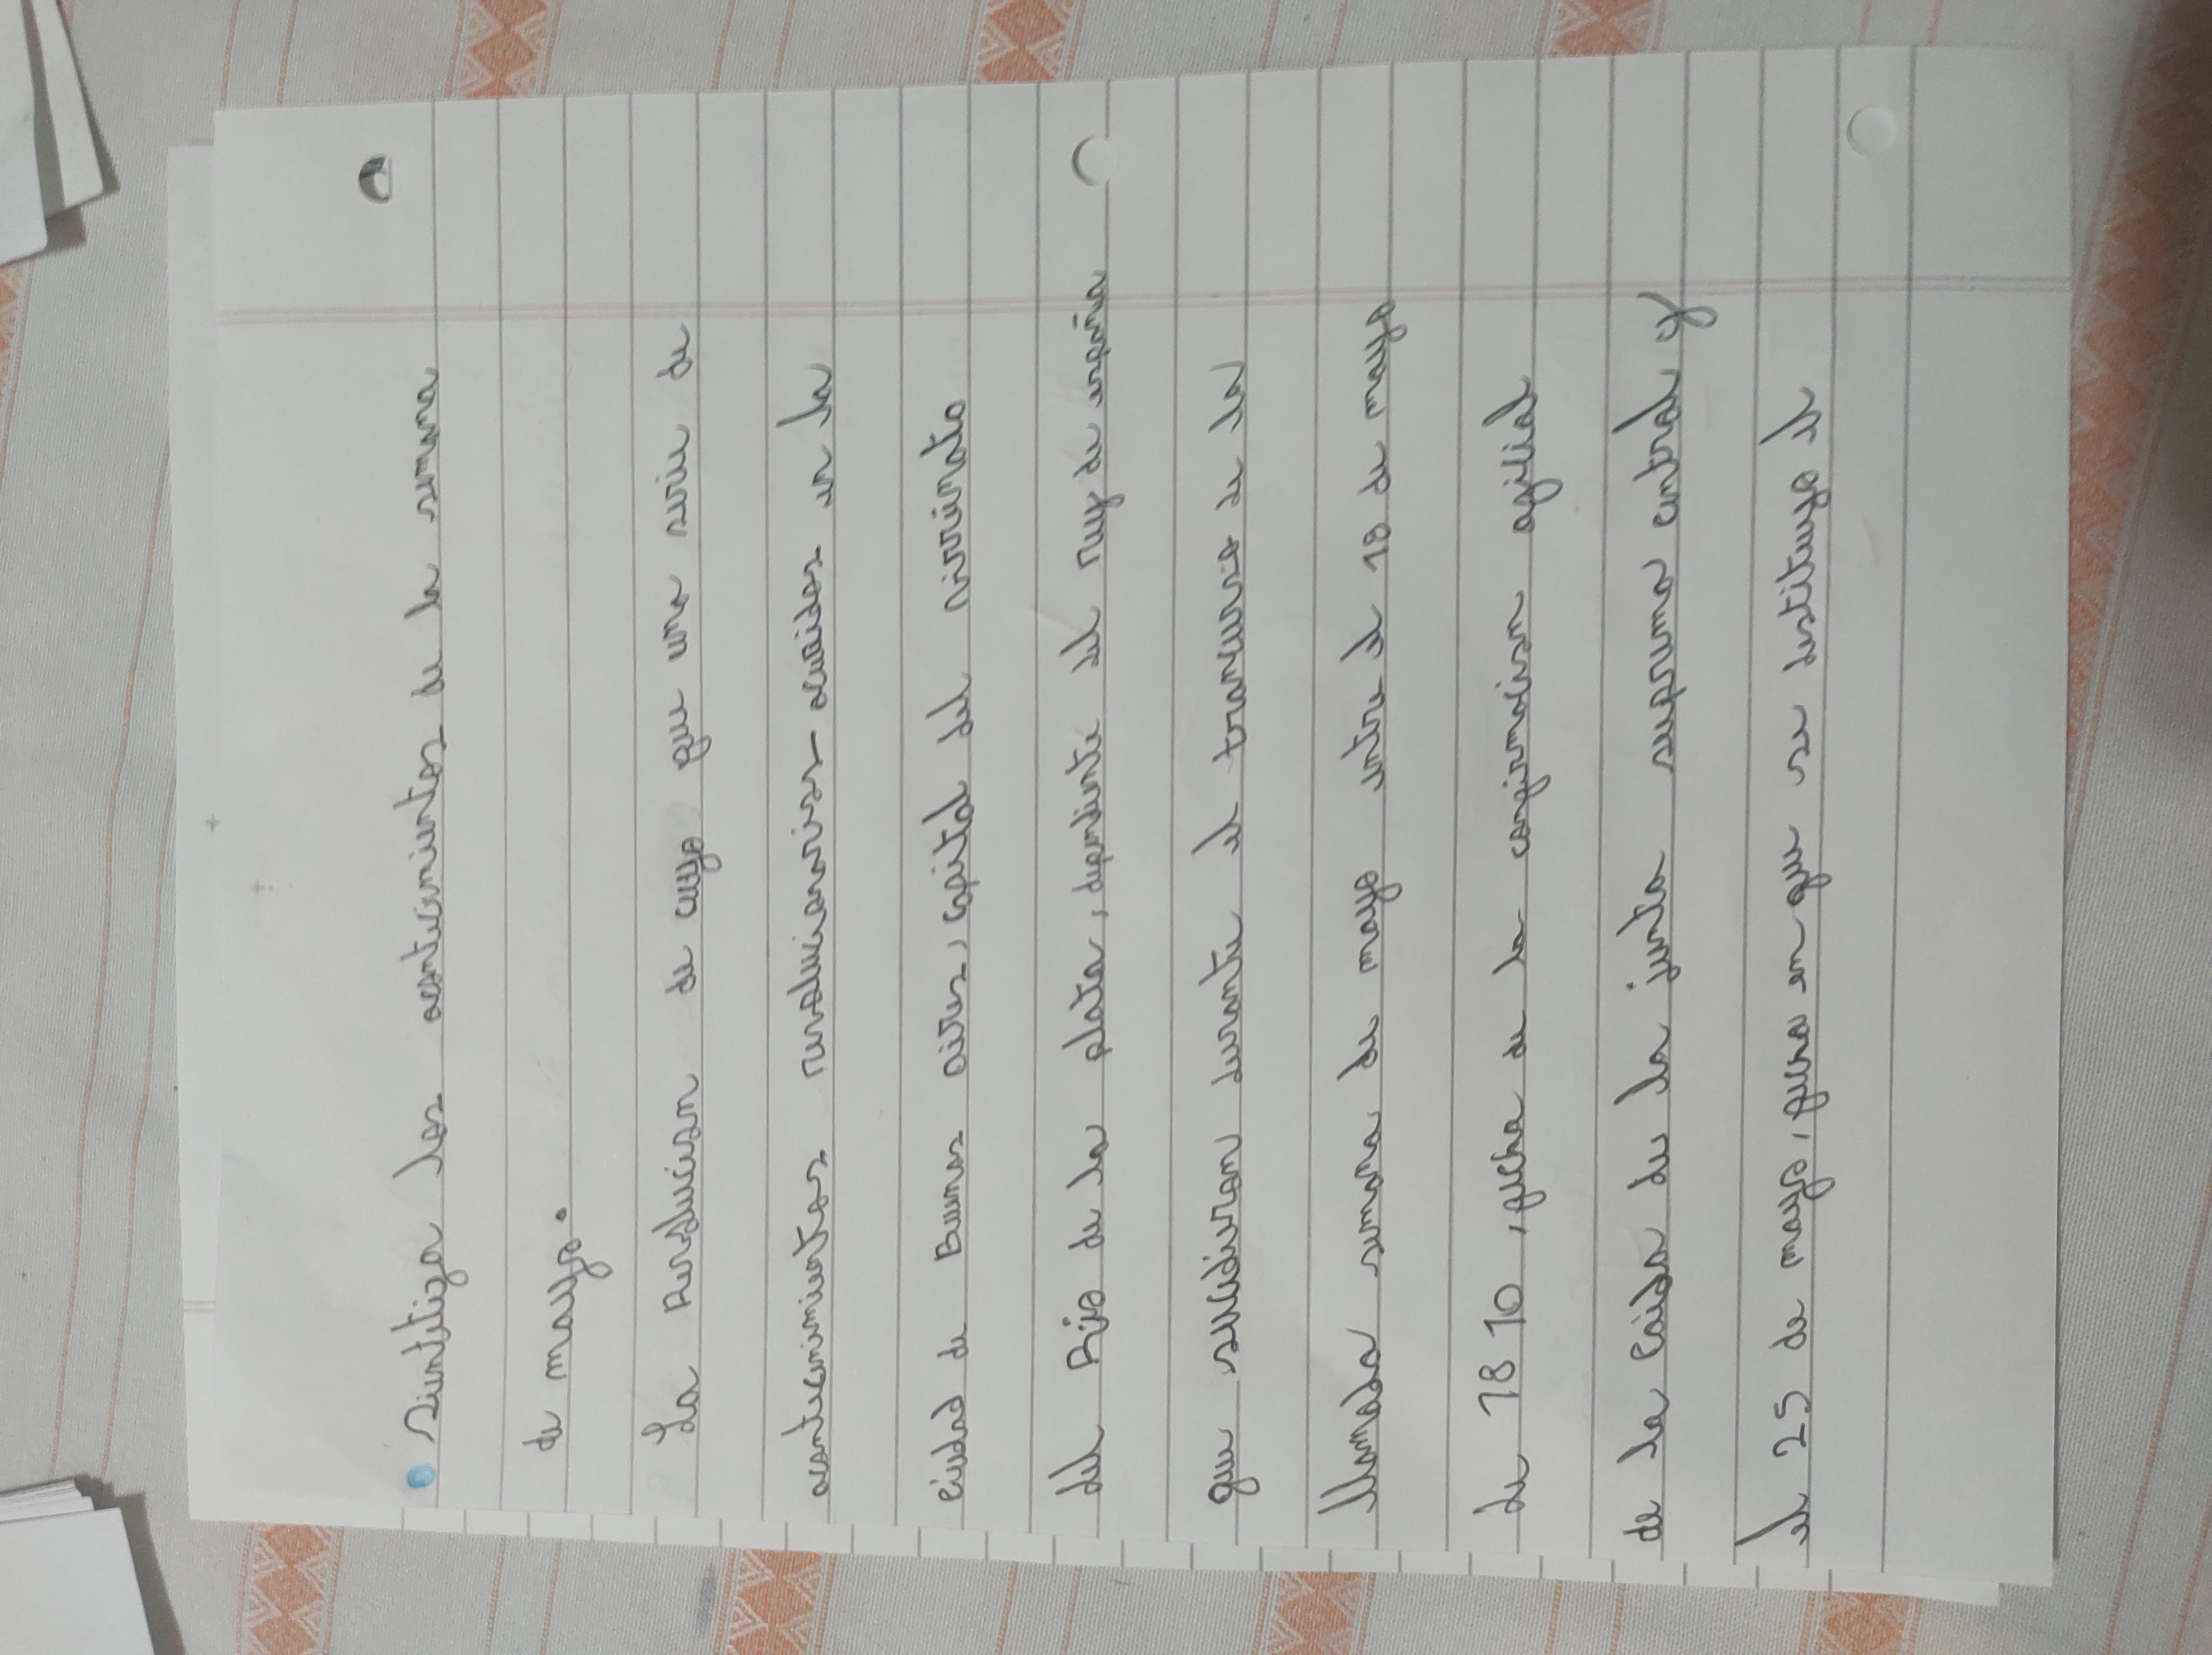 Sintetiza los acontecimientos de la semana
de mayo.
La Revolucion de cuyo fue una serie de
acontecimientos revolucionarios ocuridos en la
ciudad de Buenos aires, capital del virrienato
del Rio de la plata, depentiente del rey de españa
que sucedieron durante el trancurso de la
llamada semana de mayo entre el 18 de mayo
de 1810, fecha de la confirmacion ofilial
de la Caida de la junta suprema central y
el 25 de mayo, fecha en que se destituyo el